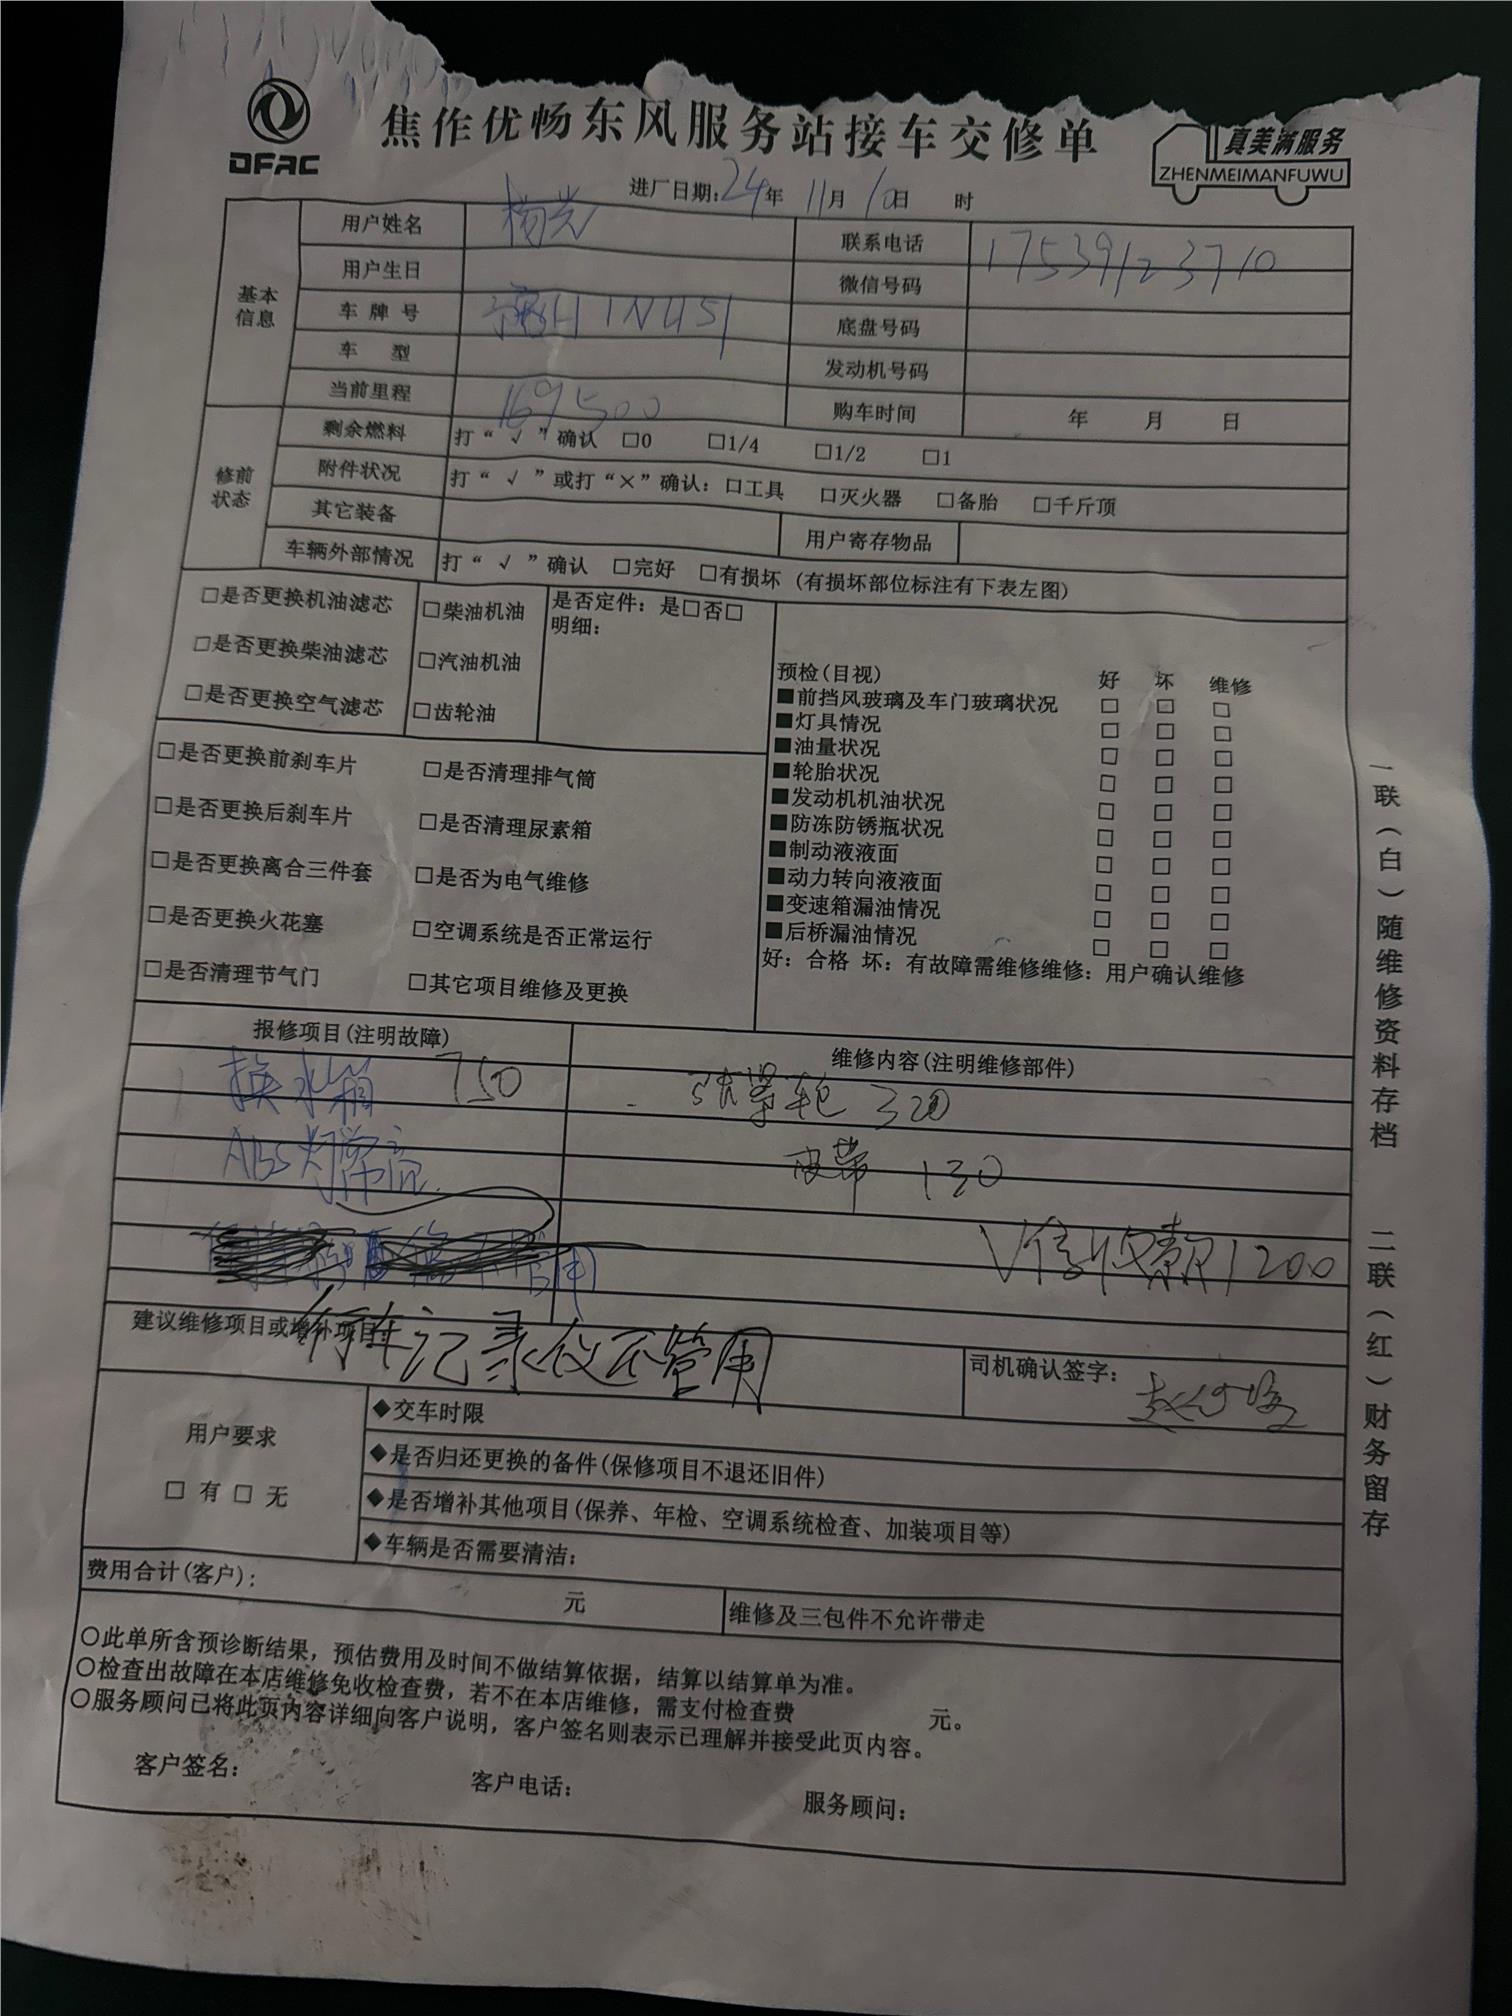 DFAC
焦作优畅东风服务站接车交修单
真美满服务
ZHENMEIMANFUWU
进厂日期:24年 11月 10日 时
基本信息
用户姓名 杨光 联系电话 17539123710
用户生日 微信号码
车牌号 豫H1NU51 底盘号码
车 型 发动机号码
当前里程 169500 购车时间 年 月 日
修前状态
剩余燃料 打“√”确认 □0 □1/4 □1/2 □1
附件状况 打“√”或打“×”确认：□工具 □灭火器 □备胎 □千斤顶
其它装备 用户寄存物品
车辆外部情况 打“√”确认 □完好 □有损坏 (有损坏部位标注有下表左图)
□是否更换机油滤芯 □柴油机油 是否定件：是□否□
明细：
□是否更换柴油滤芯 □汽油机油
□是否更换空气滤芯 □齿轮油
□是否更换前刹车片 □是否清理排气筒
□是否更换后刹车片 □是否清理尿素箱
□是否更换离合三件套 □是否为电气维修
□是否更换火花塞 □空调系统是否正常运行
□是否清理节气门 □其它项目维修及更换
预检(目视) 好 坏 维修
■前挡风玻璃及车门玻璃状况 □ □ □
■灯具情况 □ □ □
■油量状况 □ □ □
■轮胎状况 □ □ □
■发动机机油状况 □ □ □
■防冻防锈瓶状况 □ □ □
■制动液液面 □ □ □
■动力转向液液面 □ □ □
■变速箱漏油情况 □ □ □
■后桥漏油情况 □ □ □
好：合格 坏：有故障需维修维修：用户确认维修
报修项目(注明故障) 维修内容(注明维修部件)
换水箱 750 张紧轮 320
ABS灯常亮 皮带 130
收款1200
建议维修项目或增补项目：
行车记录仪不管用
司机确认签字：
用户要求
□ 有 □ 无
◆交车时限
◆是否归还更换的备件(保修项目不退还旧件)
◆是否增补其他项目(保养、年检、空调系统检查、加装项目等)
◆车辆是否需要清洁：
费用合计(客户)： 元 维修及三包件不允许带走
○此单所含预诊断结果，预估费用及时间不做结算依据，结算以结算单为准。
○检查出故障在本店维修免收检查费，若不在本店维修，需支付检查费 元。
○服务顾问已将此页内容详细向客户说明，客户签名则表示已理解并接受此页内容。
客户签名： 客户电话： 服务顾问：
一联(白)随维修资料存档 二联(红)财务留存